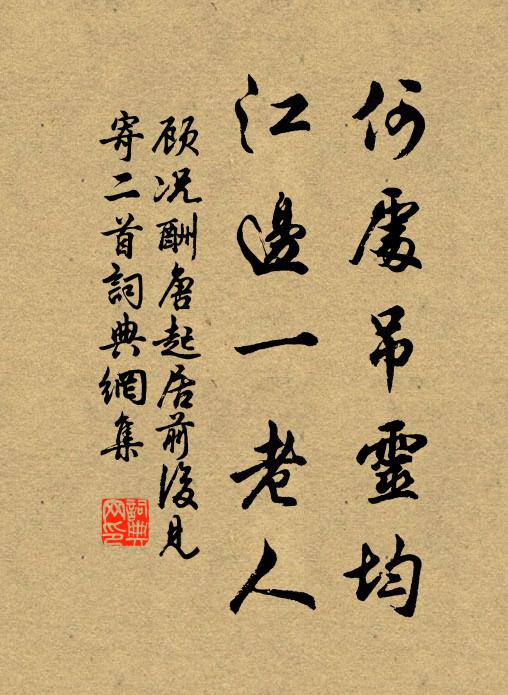 何處吊靈均
江邊一老人
顾况酬唐起居前後見
寄二首詞典網集
詞典
网印